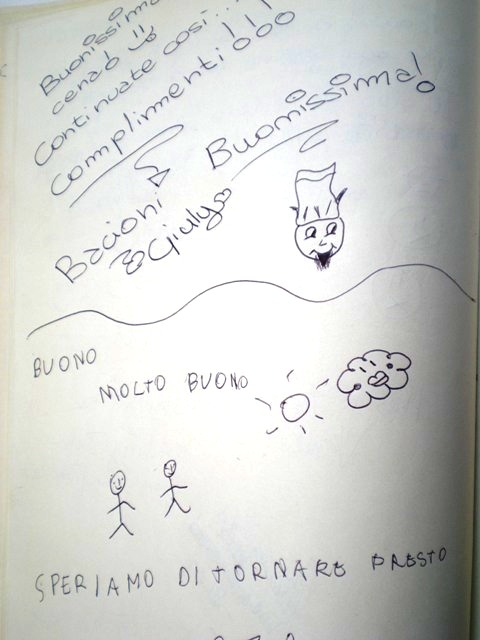 Buonissima
cena!
Continuate così...
complimenti!!!
Buonissima!
Bacioni
Giuly
BUONO
MOLTO BUONO
SPERIAMO DI TORNARE PRESTO